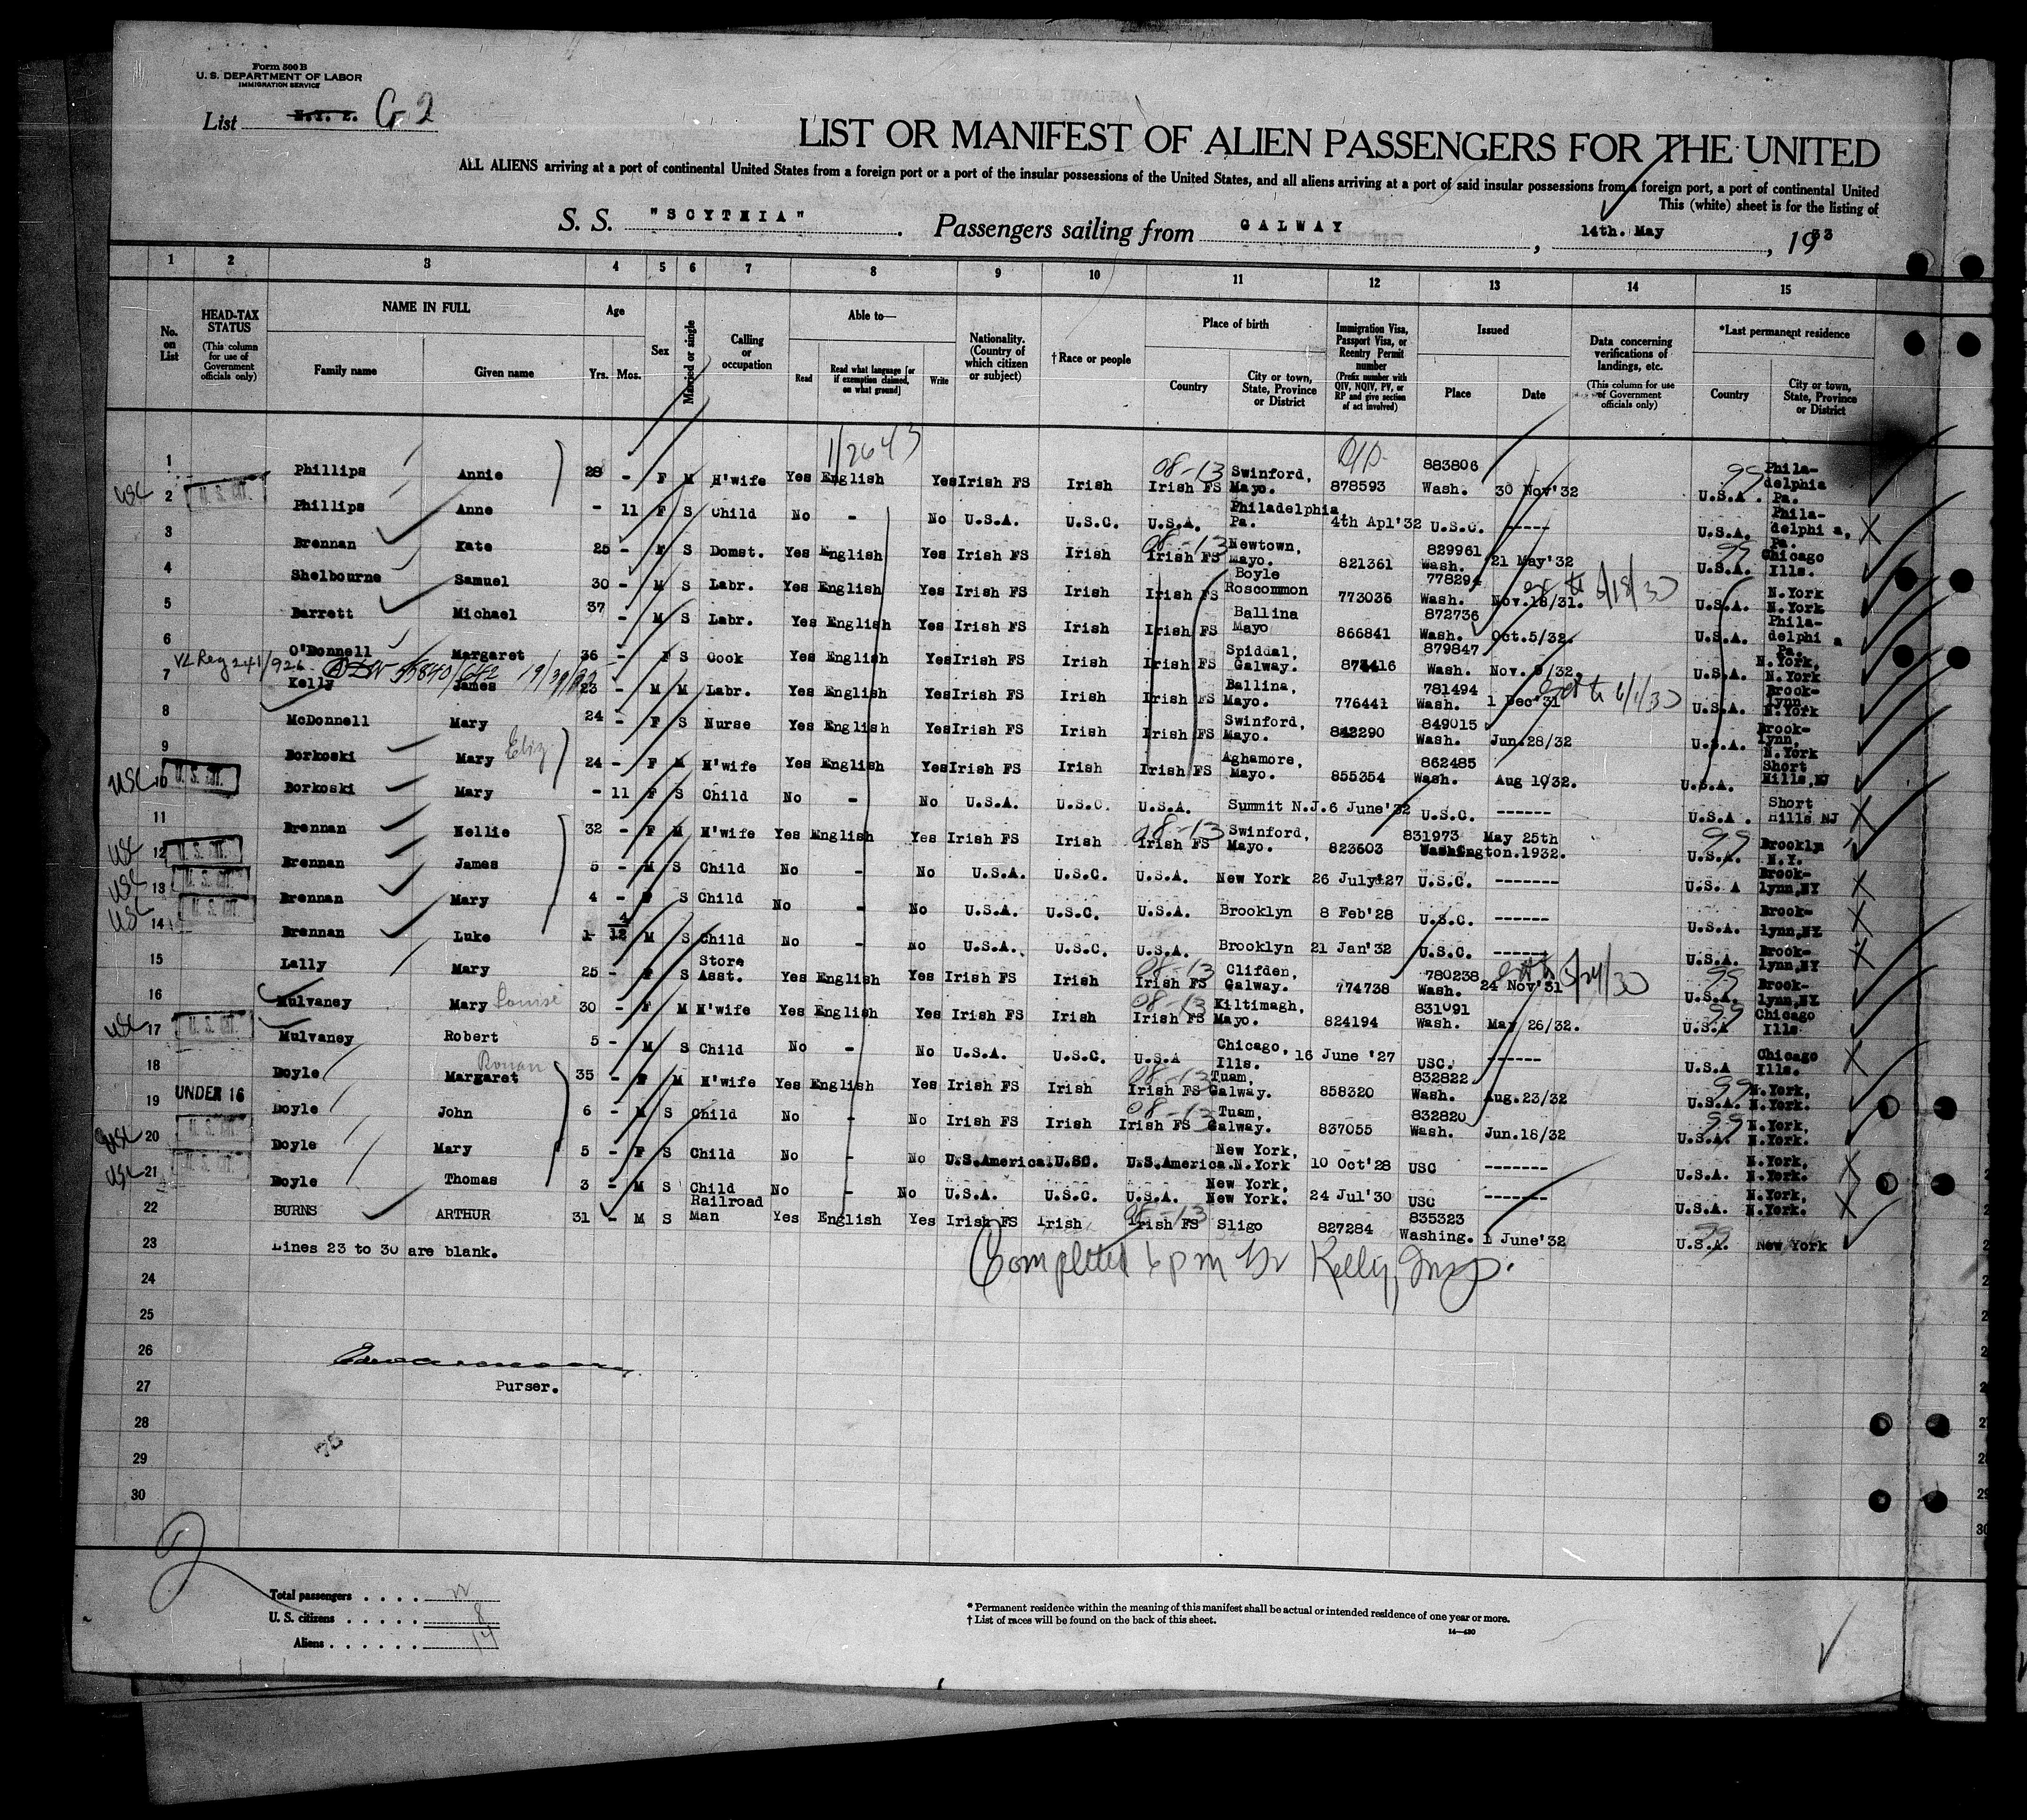 Form 500 B
U. S. DEPARTMENT OF LABOR
IMMIGRATION SERVICE
List N.Y. 2. G 2
LIST OR MANIFEST OF ALIEN PASSENGERS FOR THE UNITED
ALL ALIENS arriving at a port of continental United States from a foreign port or a port of the insular possessions of the United States, and all aliens arriving at a port of said insular possessions from a foreign port, a port of continental United
This (white) sheet is for the listing of
S. S. "SCYTHIA". Passengers sailing from GALWAY, 14th. May, 1933
1 2 3 4 5 6 7 8 9 10 11 12 13 14 15
No. on List
HEAD-TAX STATUS (This column for use of Government officials only)
NAME IN FULL Family name Given name
Age Yrs. Mos.
Sex
Married or single
Calling or occupation
Able to— Read Read what language [or if exemption claimed, on what ground] Write
Nationality. (Country of which citizen or subject)
†Race or people
Place of birth Country City or town, State, Province or District
Immigration Visa, Passport Visa, or Reentry Permit number (Prefix number with QIV, NQIV, PV, or RP and give section of act involved)
Issued Place Date
Data concerning verifications of landings, etc. (This column for use of Government officials only)
*Last permanent residence Country City or town, State, Province or District
1/2643
1 Phillips Annie 28 - F M H'wife Yes English Yes Irish FS Irish 08-13 Irish FS Swinford, Mayo. 878593 883806 Wash. 30 Nov'32 99 U.S.A. Phila- delphia Pa.
USC 2 U. S. CIT. Phillips Anne - 11 F S Child No - No U.S.A. U.S.C. U.S.A. Philadelphia Pa. 4th Apl'32 U.S.C. ----- U.S.A. Phila- delphi a, Pa.
3 Brennan Kate 25 - F S Domst. Yes English Yes Irish FS Irish 08-13 Irish FS Newtown, Mayo. 821361 829961 Wash. 21 May'32 99 U.S.A. Chicago Ills.
4 Shelbourne Samuel 30 - M S Labr. Yes English Yes Irish FS Irish Irish FS Boyle Roscommon 773036 778294 Wash. Nov.18/31. 5/18/33 U.S.A. N.York N.York
5 Barrett Michael 37 - M S Labr. Yes English Yes Irish FS Irish Irish FS Ballina Mayo 866841 872736 Wash. Oct.5/32. U.S.A. Phila- delphi a Pa.
6 O'Donnell Margaret 36 - F S Cook Yes English Yes Irish FS Irish Irish FS Spiddal, Galway. 879847 Wash. U.S.A. N.York, N.York
VL Reg 241/926
7 Kelly James 23 - M M Labr. Yes English Yes Irish FS Irish Irish FS Ballina, Mayo. 776441 781494 Wash. 1 Dec'31 U.S.A. Brook- lynn, N.York
8 McDonnell Mary 24 - F S Nurse Yes English Yes Irish FS Irish Irish FS Swinford, Mayo. 842290 849015 Wash. Jun.28/32 U.S.A. Brook- lynn, N.York
9 Borkoski Mary Eliz 24 - F M H'wife Yes English Yes Irish FS Irish Irish FS Aghamore, Mayo. 855354 862485 Wash. Aug 10/32. U.S.A. Short Hills,NJ
USC 10 U. S. CIT. Borkoski Mary - 11 F S Child No - No U.S.A. U.S.C. U.S.A. Summit N.J. 6 June'32 U.S.C. ------ U.S.A. Short Hills NJ
11 Brennan Nellie 32 - F M H'wife Yes English Yes Irish FS Irish 08-13 Irish FS Swinford, Mayo. 823603 831973 Washington. May 25th 1932. 99 U.S.A. Brookly N.Y.
USC 12 U. S. CIT. Brennan James 5 - M S Child No - No U.S.A. U.S.C. U.S.A. New York 26 July'27 U.S.C. ------- U.S. A Brook- lynn,NY
USC 13 U. S. CIT. Brennan Mary 4 - F S Child No - No U.S.A. U.S.C. U.S.A. Brooklyn 8 Feb'28 U.S.C. ------ U.S.A. Brook- lynn,NY
USC 14 U. S. CIT. Brennan Luke 1 4/12 M S Child No - No U.S.A. U.S.C. U.S.A. Brooklyn 21 Jan'32 U.S.C. ------ U.S.A. Brook- lynn,NY
15 Lally Mary 25 - F S Store Asst. Yes English Yes Irish FS Irish 08-13 Irish FS Clifden, Galway. 774738 780238 Wash. 24 Nov'31 99 U.S.A. Brook- lynn,NY
16 Mulvaney Mary Louise 30 - F M H'wife Yes English Yes Irish FS Irish 08-13 Irish FS Kiltimagh, Mayo. 824194 831091 Wash. May 26/32. 99 U.S.A Chicago Ills
USC 17 U. S. CIT. Mulvaney Robert 5 - M S Child No - No U.S.A. U.S.C. U.S.A Chicago, Ills. 16 June '27 USC. ------ U.S.A Chicago Ills.
18 Doyle Margaret Ronan 35 - F M H'wife Yes English Yes Irish FS Irish 08-13 Irish FS Tuam, Galway. 858320 832822 Wash. Aug.23/32 99 U.S.A. N.York, N.York.
19 UNDER 16 Doyle John 6 - M S Child No - No Irish FS Irish 08-13 Irish FS Tuam, Galway. 837055 832820 Wash. Jun.18/32 99 U.S.A. N.York, N.York.
USC 20 U. S. CIT. Doyle Mary 5 - F S Child No - No U.S.America. U.SC. U.S.America. New York, N.York 10 Oct'28 USC ------- U.S.A. N.York, N.York.
USC 21 U. S. CIT. Doyle Thomas 3 - M S Child No - No U.S.A. U.S.C. U.S.A. New York, New York. 24 Jul'30 USC ------- U.S.A. N.York, N.York.
22 BURNS ARTHUR 31 - M S Railroad Man Yes English Yes Irish FS Irish 08-13 Irish FS Sligo 827284 835323 Washing. 1 June'32 99 U.S.A. New York
23 Lines 23 to 30 are blank.
Completed 6 pm Kelly, Insp.
24
25
26
27 Purser.
28
29
30
2
Total passengers . . . . 22
U. S. citizens . . . . . 8
Aliens . . . . . . 14
* Permanent residence within the meaning of this manifest shall be actual or intended residence of one year or more.
† List of races will be found on the back of this sheet.
14—430